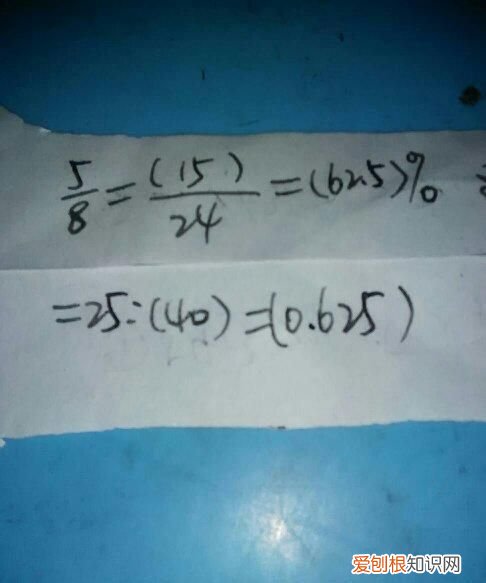 5/8 = (15)/24 = (62.5)%
=25:(40)=(0.625)
爱刨根知识网